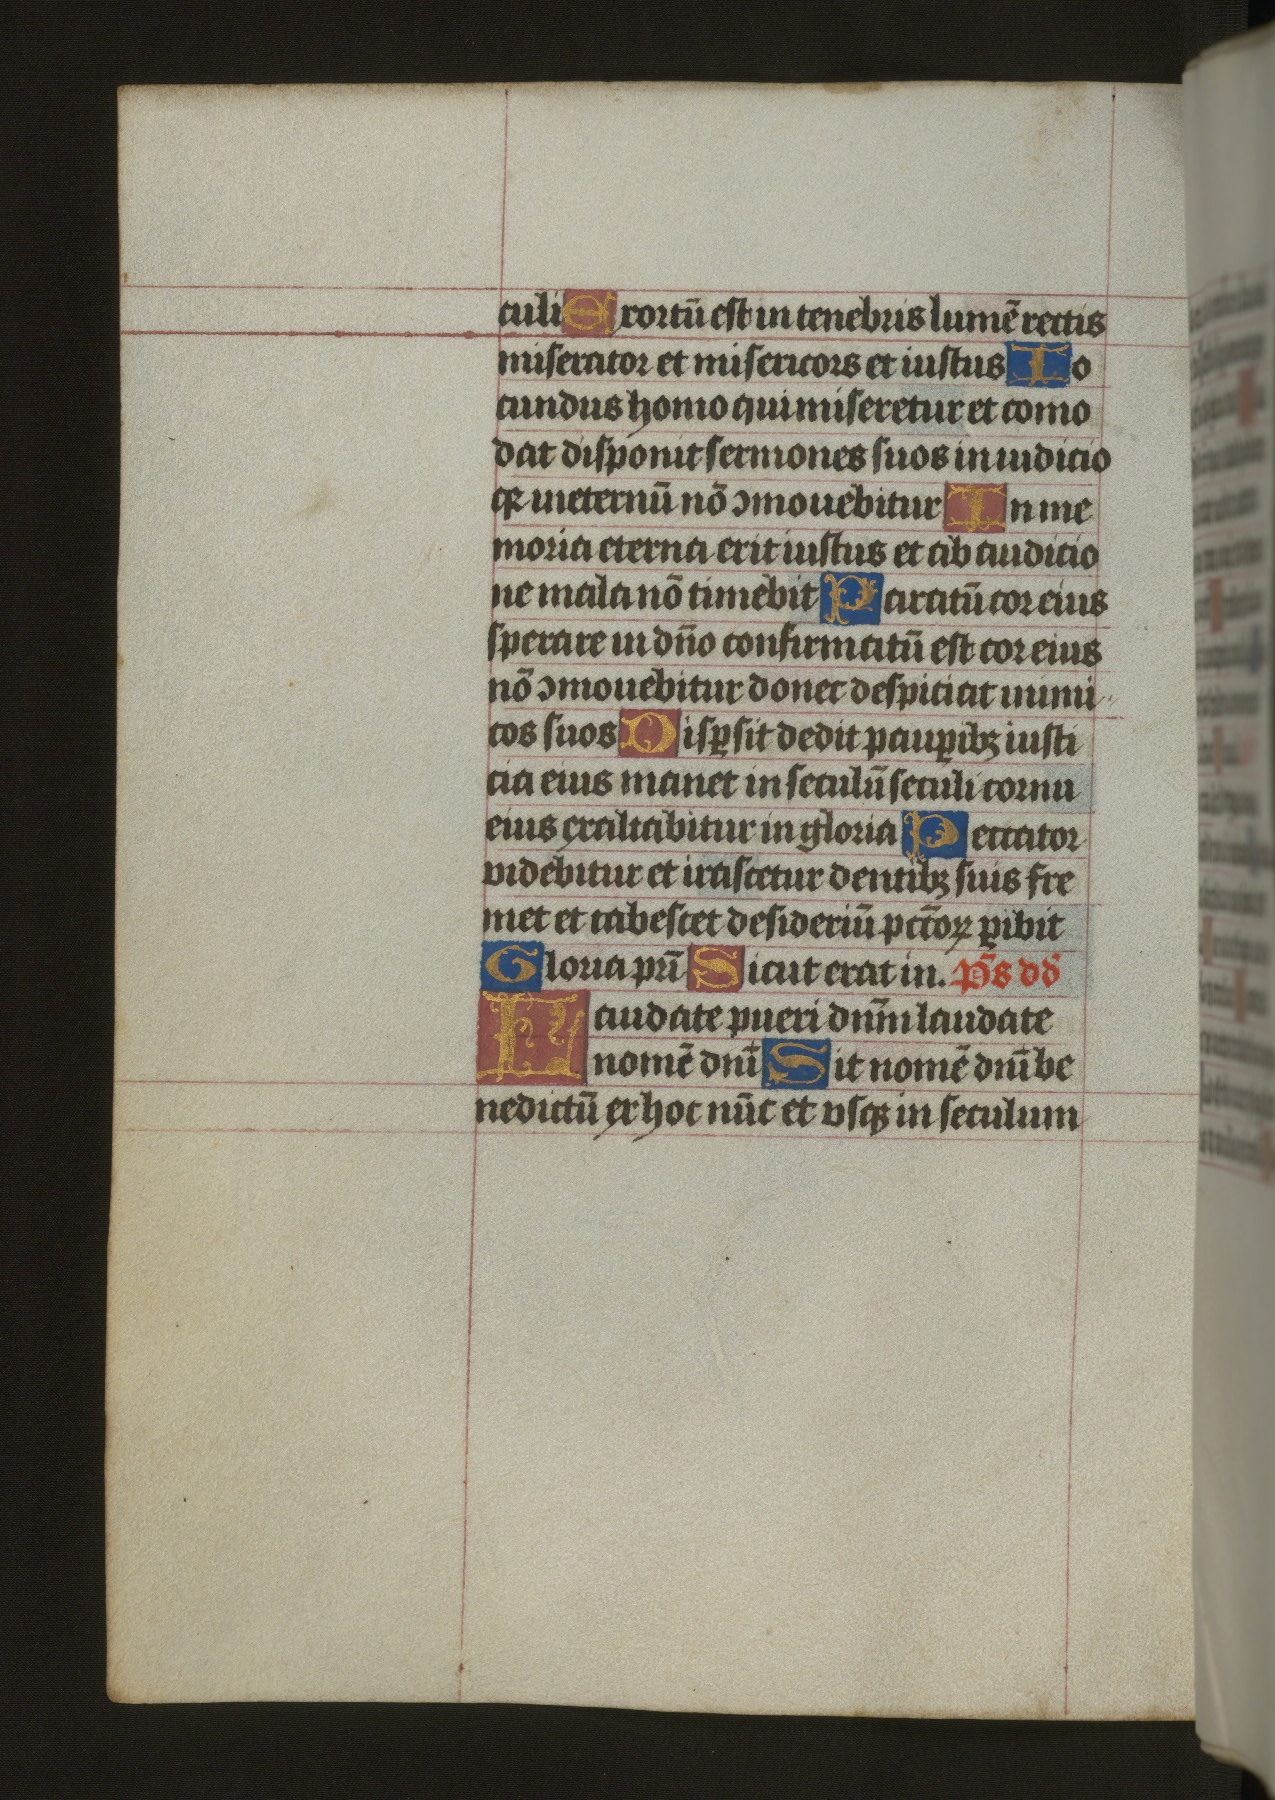 culi Exortū est in tenebris lumē rectis
miserator et misericors et iustus Io
cundus homo qui miseretur et como
dat disponit sermones suos in iudicio
qꝛ ineternū nō ꝯmouebitur In me
moria eterna erit iustus et ab auditio
ne mala nō timebit Paratū cor eius
sperare in dn̄o confirmatū est cor eius
nō ꝯmouebitur donec despiciat inimi
cos suos Disꝑsit dedit pauꝑibꝫ iusti
cia eius manet in seculū seculi cornu
eius exaltabitur in gloria Peccator
videbitur et irascetur dentibꝫ suis fre
met et tabescet desideriū pctōꝝ ꝑibit
Gloria pr̄i Sicut erat in. Ps̄ dd̄
Laudate pueri dn̄m laudate
nomē dn̄i Sit nomē dn̄i be
nedictū ex hoc nūc et vsqꝫ in seculum